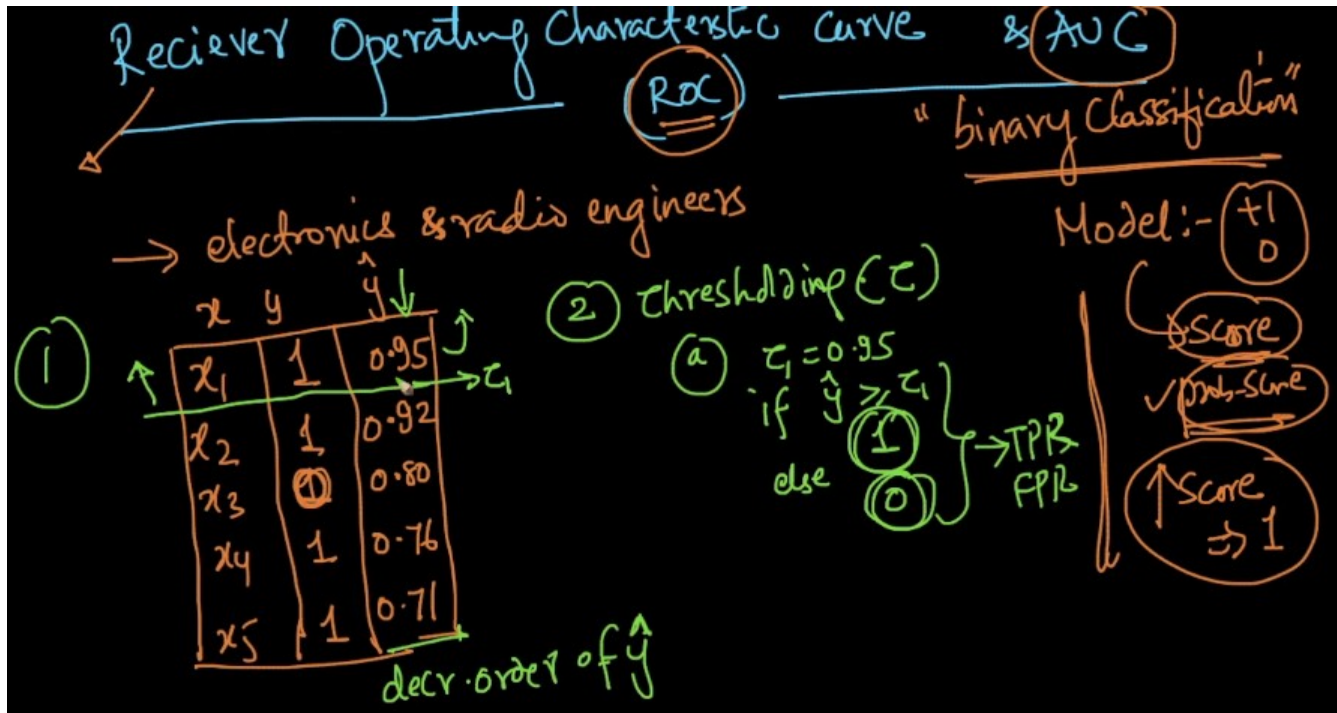 Reciever Operating Characteristic Curve & AUC
(ROC)
"binary Classification"
→ electronics & radio engineers
Model:- +1
0
score
✓ prob-score
↑ Score
⇒ 1
①
x y ŷ
x₁ 1 0.95 → τ₁
x₂ 1 0.92
x₃ 0.80
x₄ 1 0.76
x₅ 1 0.71
decr. order of ŷ
② Thresholding (τ)
ⓐ τ₁ = 0.95
if ŷ ≥ τ₁
1
else 0
→ TPR
FPR